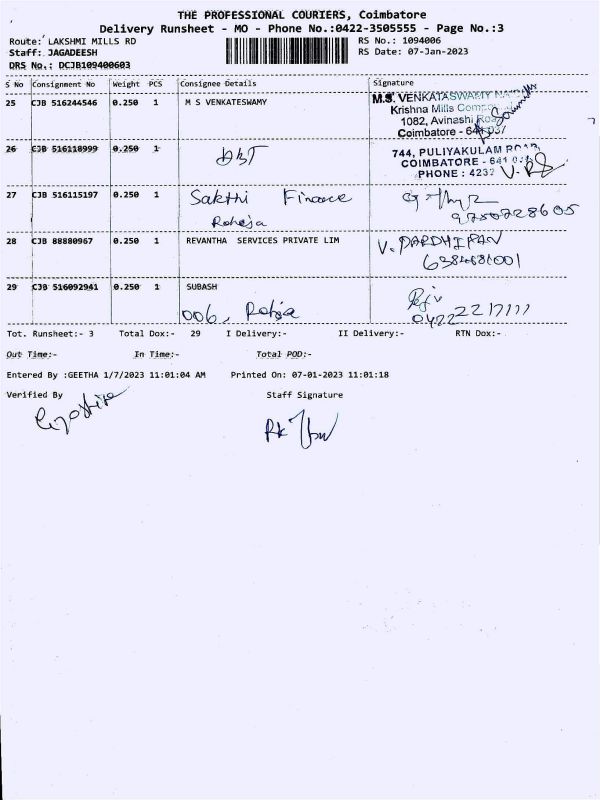 THE PROFESSIONAL COURIERS, Coimbatore
Delivery Runsheet - MO - Phone No.:0422-3505555 - Page No.:3
Route: LAKSHMI MILLS RD RS No.: 1094006
Staff: JAGADEESH RS Date: 07-Jan-2023
DRS No.: DCJB109400603
S No Consignment No Weight PCS Consignee Details Signature
25 CJB 516244546 0.250 1 M S VENKATESWAMY M.S. VENKATASWAMY
Krishna Mills
1082, Avinashi Road
Coimbatore -
26 CJB 516118999 0.250 1 DBT 744, PULIYAKULAM ROAD,
COIMBATORE - 641
PHONE : 4232
27 CJB 516115197 0.250 1 Sakthi Finance
Raheja 9750728605
28 CJB 88880967 0.250 1 REVANTHA SERVICES PRIVATE LIM V. PARDHIPAN
6384681001
29 CJB 516092941 0.250 1 SUBASH
006, Raheja 0422 2217111
Tot. Runsheet:- 3 Total Dox:- 29 I Delivery:- II Delivery:- RTN Dox:-
Out Time:- In Time:- Total POD:-
Entered By :GEETHA 1/7/2023 11:01:04 AM Printed On: 07-01-2023 11:01:18
Verified By Staff Signature